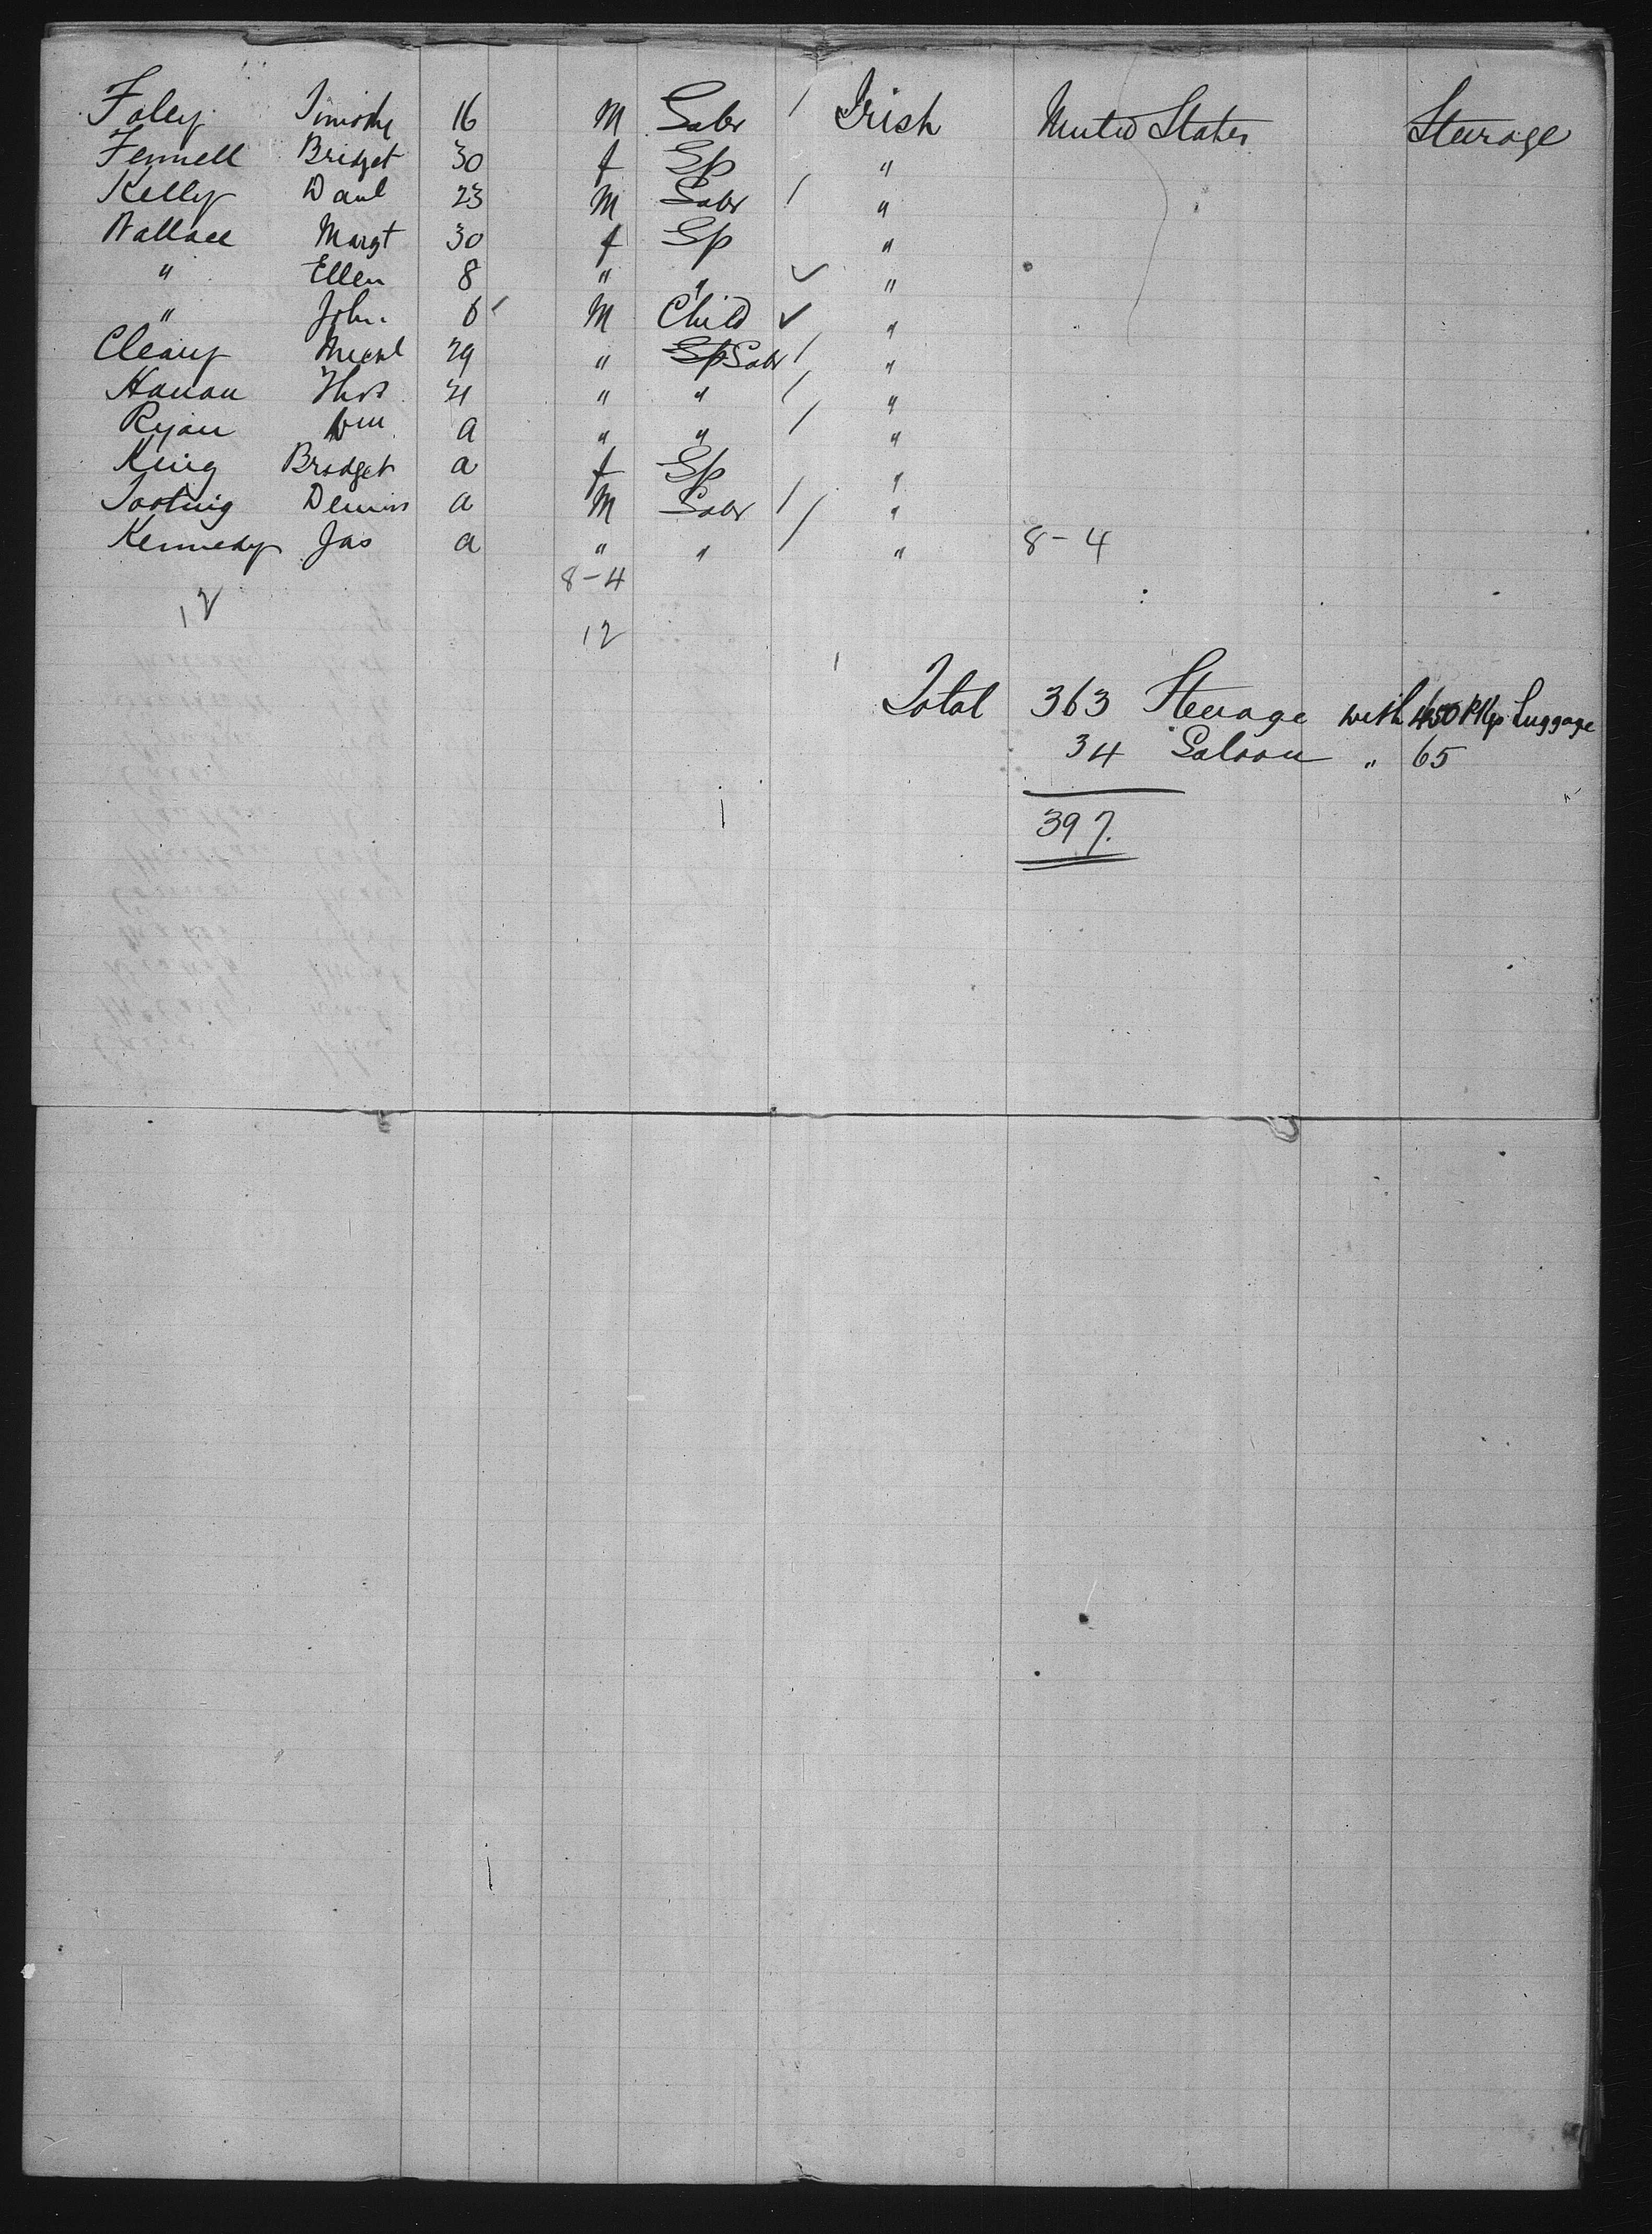 Foley Timothy 16 M Labr / Irish United States Steerage
Fennell Bridget 30 f Sp "
Kelly Danl 23 M Labr / "
Wallace Margt 30 f Sp "
" Ellen 8 " " ✓ "
" John 6 M Child ✓ "
Cleary Michl 29 " Sp Labr / "
Hanan Thos 21 " " / "
Ryan Wm a " " / "
King Bridget a f Sp "
Dennis a M Labr / "
Kennedy Jas a " " / " 8-4
8-4
12
12
Total 363 Steerage with 450 Pkgs Luggage
34 Saloon " 65
397.